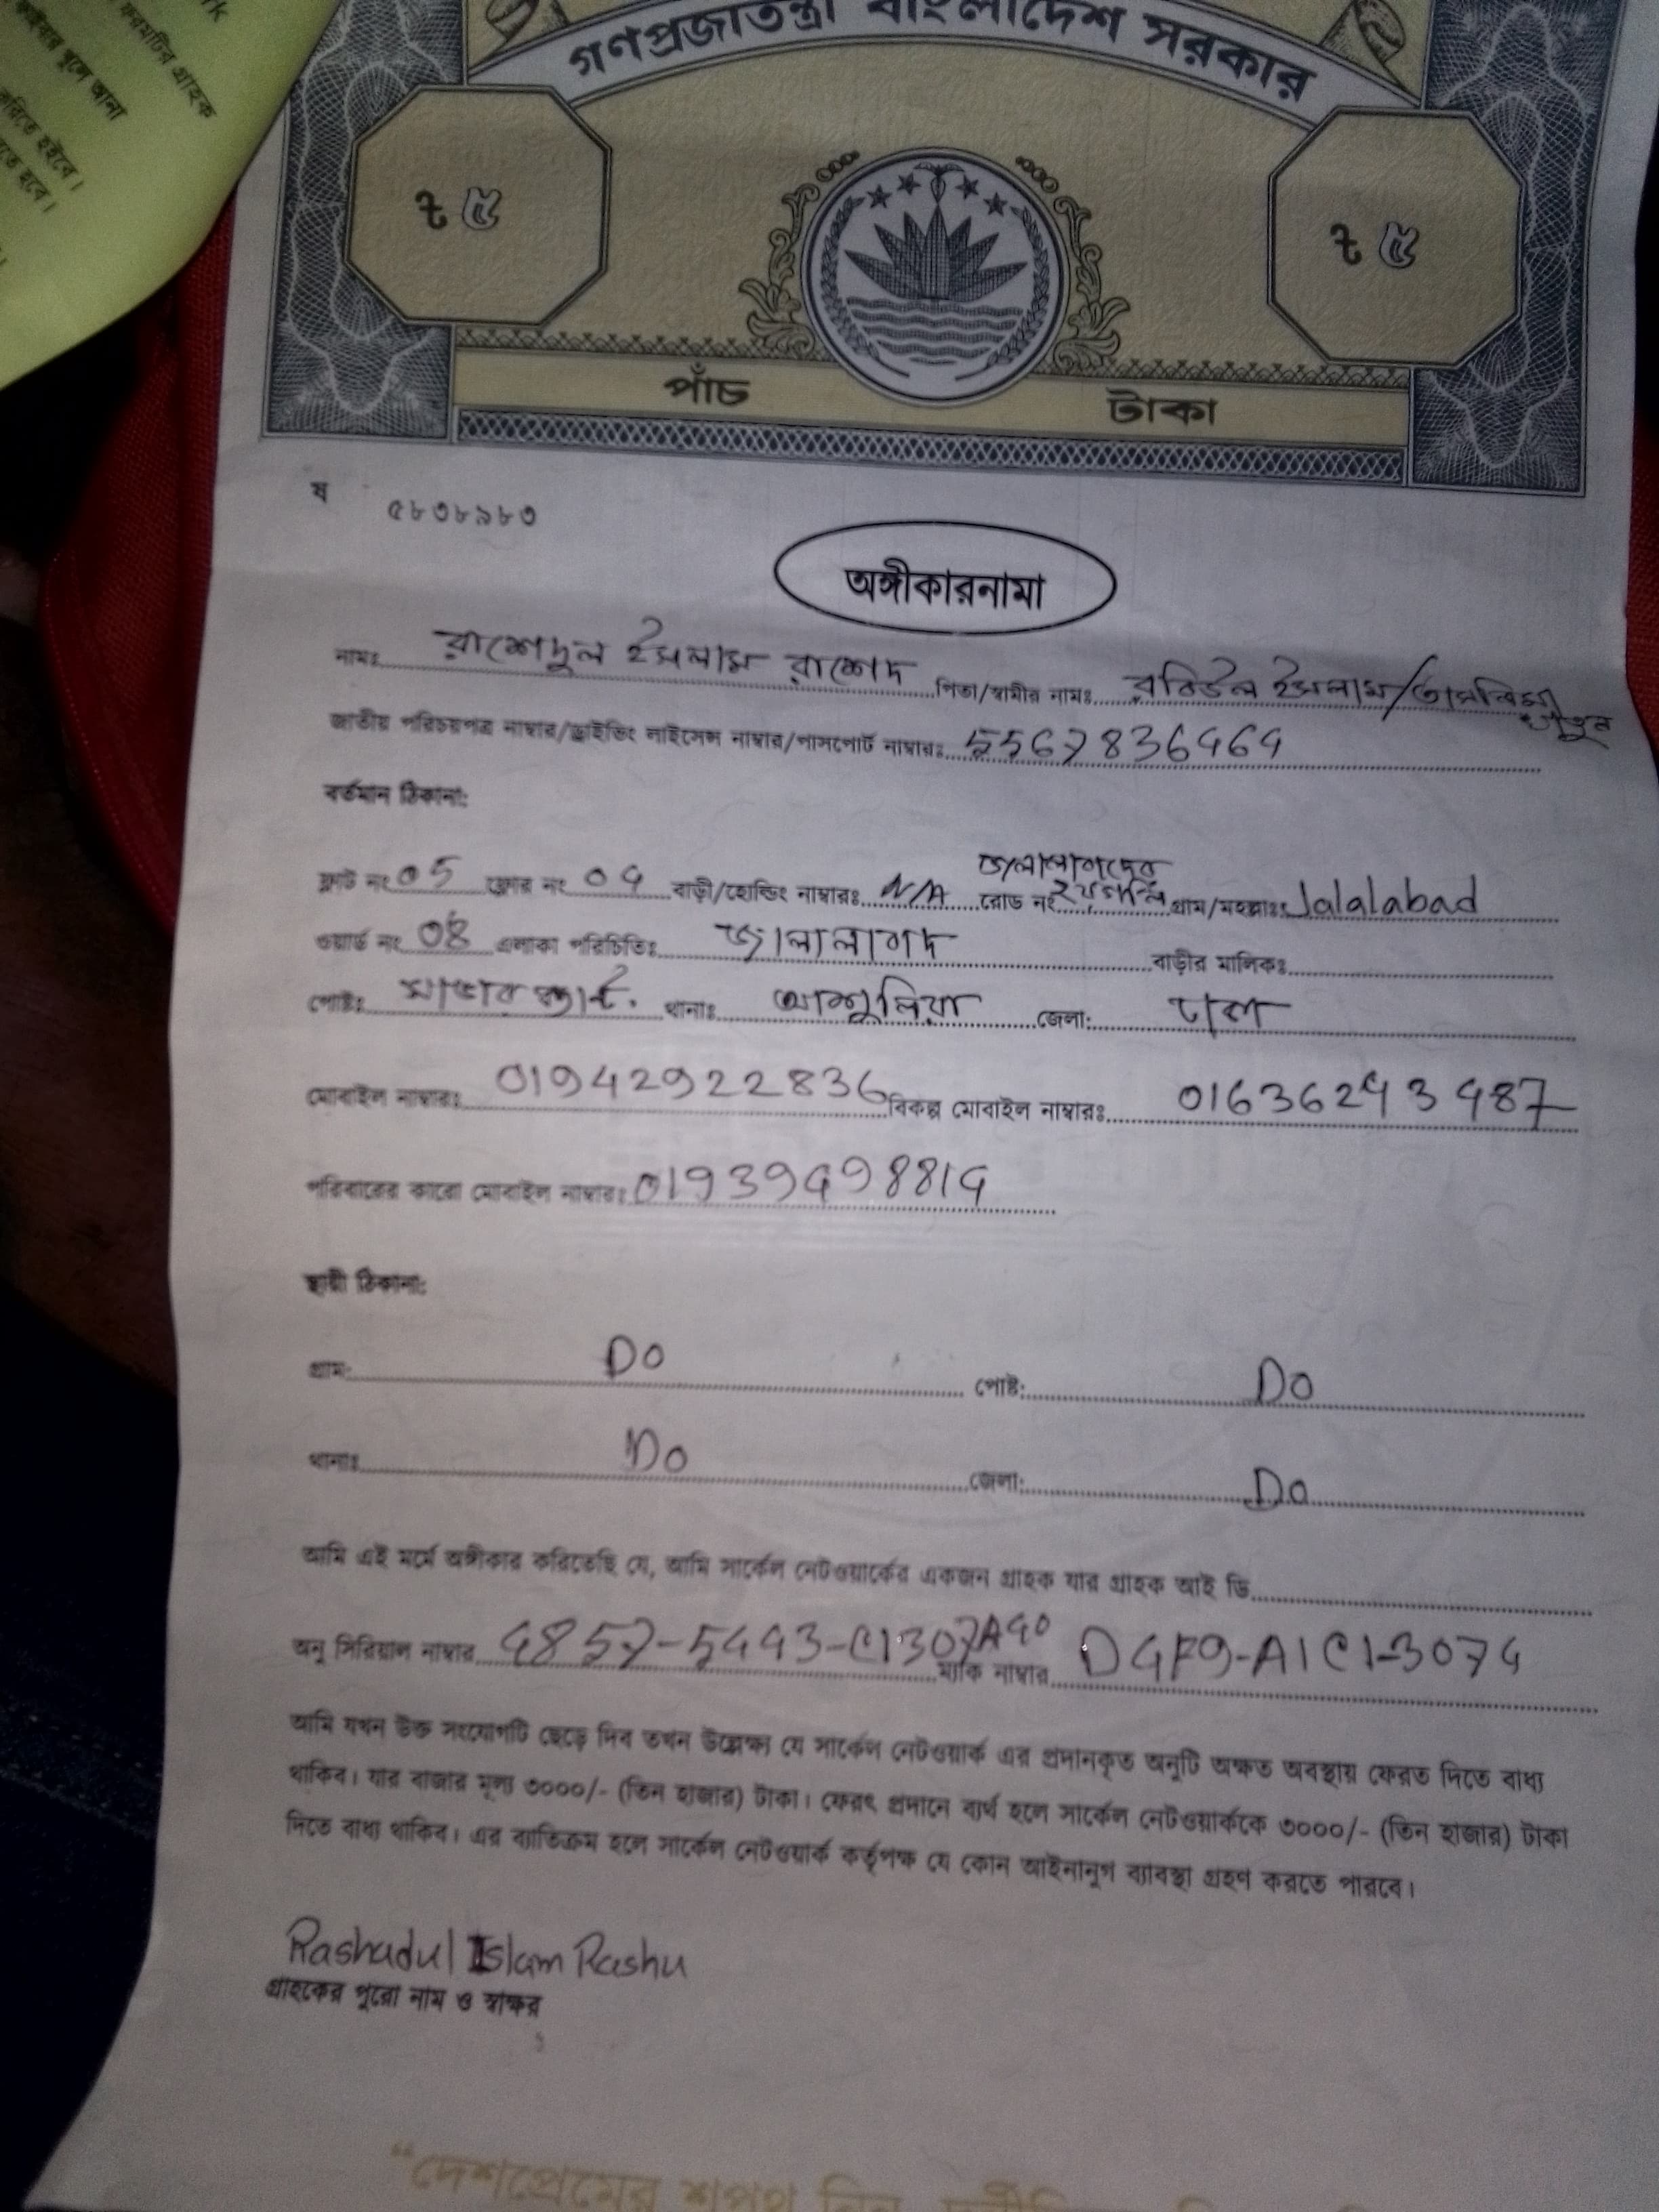 গণপ্রজাতন্ত্রী বাংলাদেশ সরকার
৳ ৫
৳ ৫
পাঁচ টাকা
ষ ৫৮৩৮৯৮৩
অঙ্গীকারনামা
নামঃ রাশেদুল ইসলাম রাশেদ পিতা/স্বামীর নামঃ রবিউল ইসলাম/তাসলিমা খাতুন
জাতীয় পরিচয়পত্র নাম্বার/ড্রাইভিং লাইসেন্স নাম্বার/পাসপোর্ট নাম্বারঃ 5567836464
বর্তমান ঠিকানা:
ফ্লাট নং 05 ফ্লোর নং 04 বাড়ী/হোল্ডিং নাম্বারঃ N/A রোড নং গ্রাম/মহল্লাঃ Jalalabad
ওয়ার্ড নং 08 এলাকা পরিচিতিঃ বাড়ীর মালিকঃ
পোষ্টঃ থানাঃ আশুলিয়া জেলা: ঢাকা
মোবাইল নাম্বারঃ 01942922836 বিকল্প মোবাইল নাম্বারঃ 01636243487
পরিবারের কারো মোবাইল নাম্বারঃ 01939498814
স্থায়ী ঠিকানা:
গ্রাম: Do পোষ্ট: Do
থানাঃ Do জেলা: Do
আমি এই মর্মে অঙ্গীকার করিতেছি যে, আমি সার্কেল নেটওয়ার্কের একজন গ্রাহক যার গ্রাহক আই ডি
অনু সিরিয়াল নাম্বার 4857-5443-C1307A40 ম্যাক নাম্বার D4F9-A1C1-3074
আমি যখন উক্ত সংযোগটি ছেড়ে দিব তখন উল্লেক্ষ্য যে সার্কেল নেটওয়ার্ক এর প্রদানকৃত অনুটি অক্ষত অবস্থায় ফেরত দিতে বাধ্য
থাকিব। যার বাজার মূল্য ৩০০০/- (তিন হাজার) টাকা। ফেরৎ প্রদানে ব্যর্থ হলে সার্কেল নেটওয়ার্ককে ৩০০০/- (তিন হাজার) টাকা
দিতে বাধ্য থাকিব। এর ব্যাতিক্রম হলে সার্কেল নেটওয়ার্ক কর্তৃপক্ষ যে কোন আইনানুগ ব্যাবস্থা গ্রহণ করতে পারবে।
Rashadul Islam Rashu
গ্রাহকের পুরো নাম ও স্বাক্ষর
“দেশপ্রেমের শপথ নিন